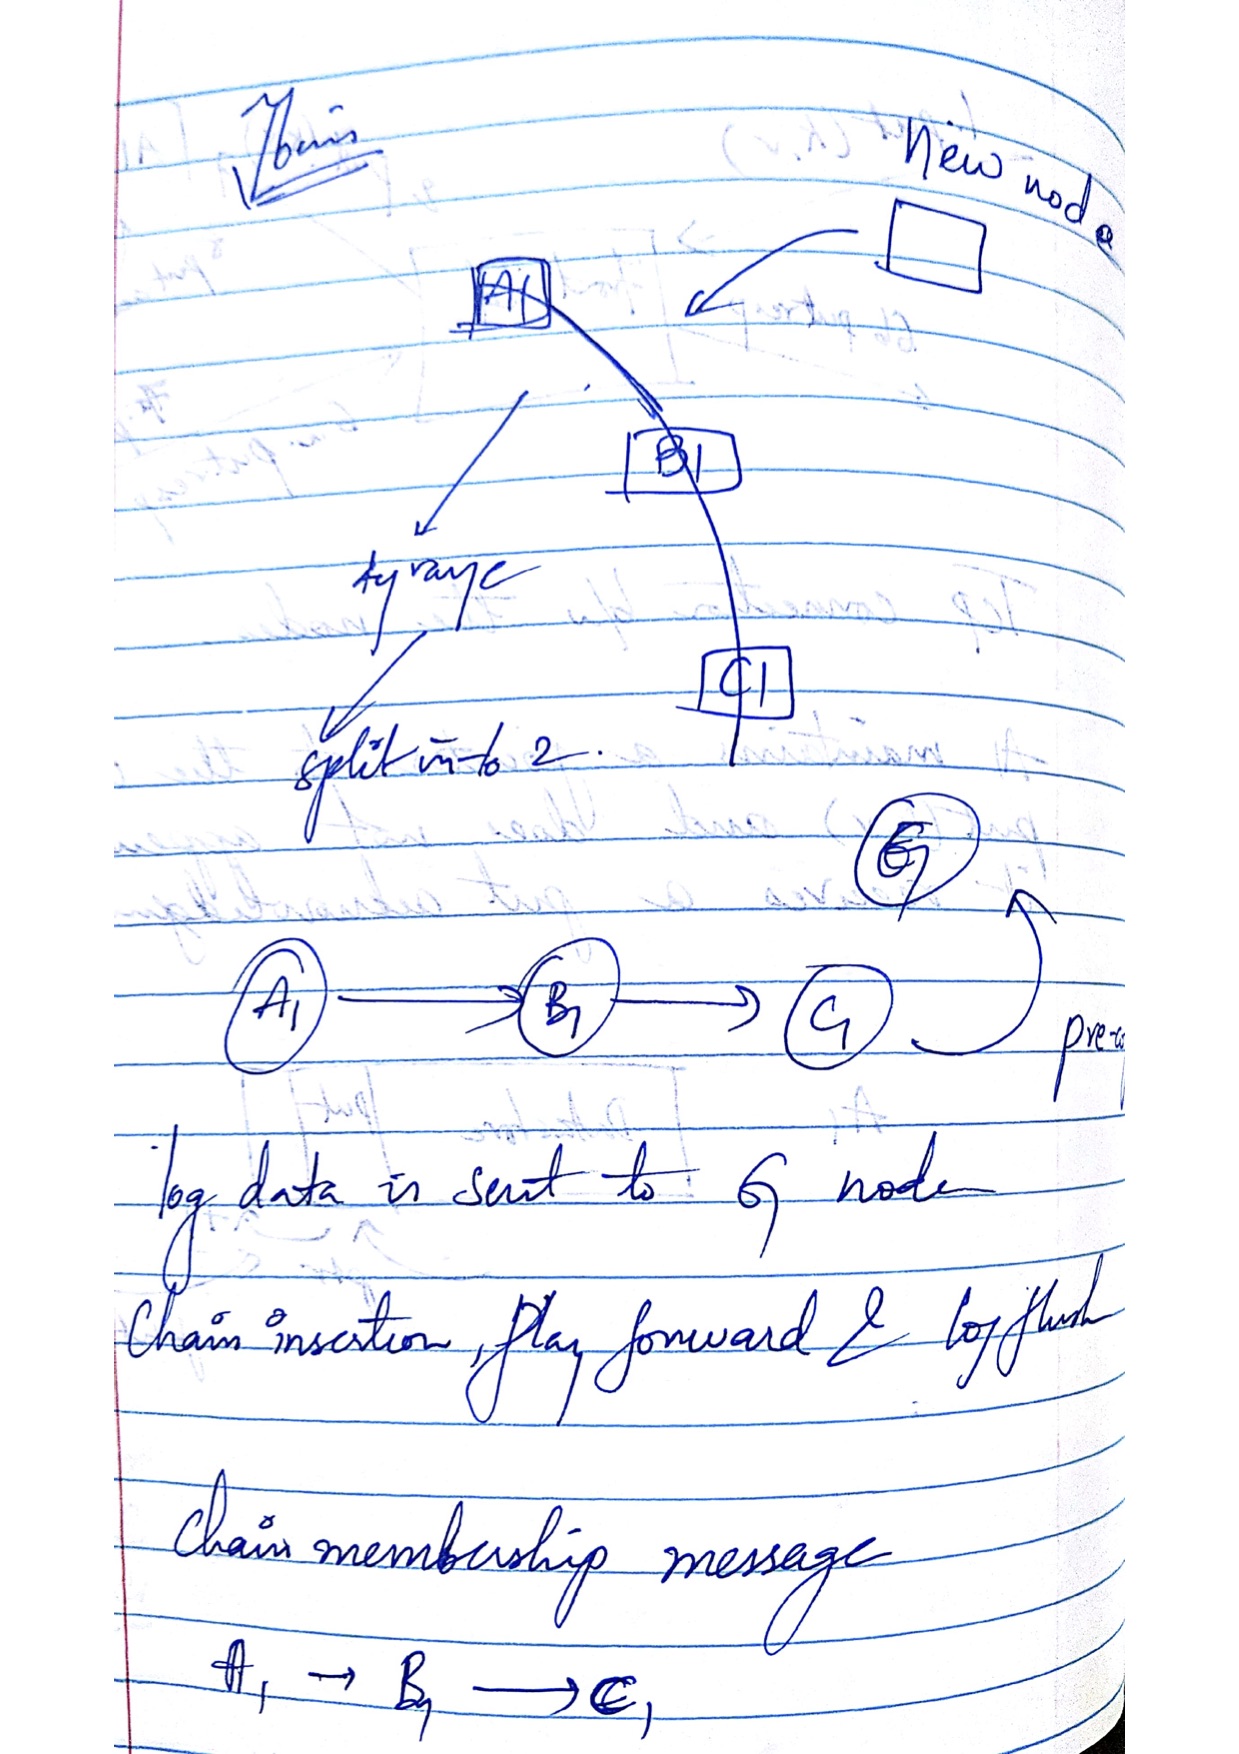 New node
A1
B1
key range
C1
split into 2.
G
A1 → B1 → C1
pre-co
log data is sent to G node
Chain insertion, play forward & log flush
Chain membership message
A1 → B1 → C1